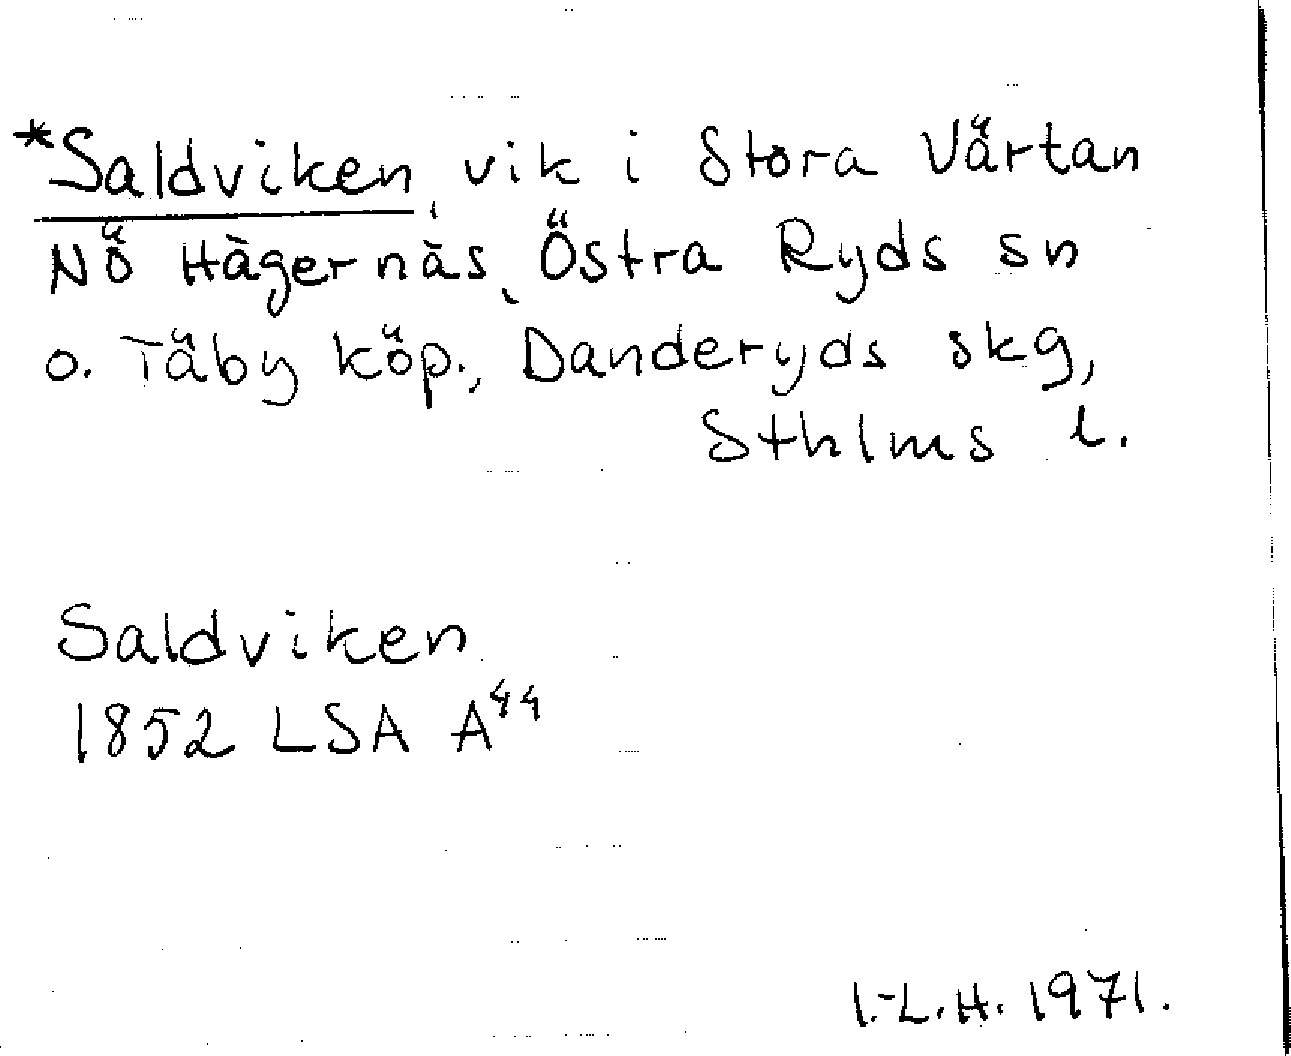 *Saldviken, vik i Stora Värtan
NÖ Hägernäs, Östra Ryds sn
o. Täby köp., Danderyds skg,
Sthlms l.
Saldviken
1852 LSA A⁴⁴
I.-L.H. 1971.